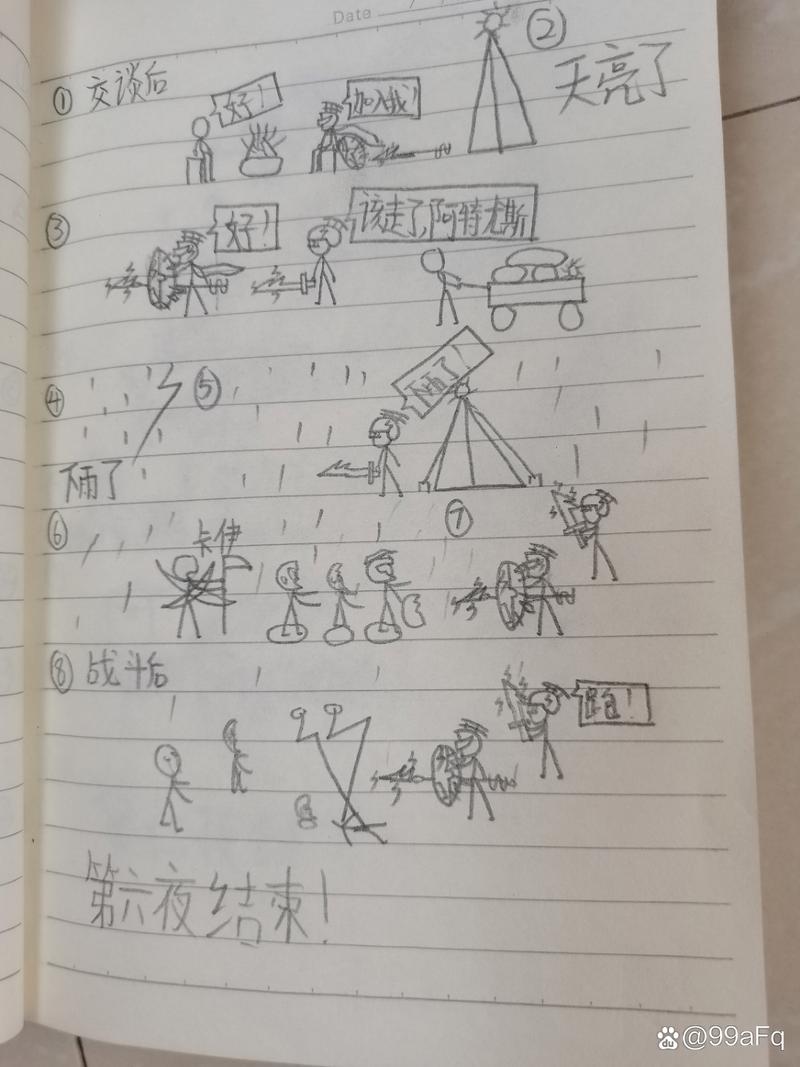 Date
① 交谈后
好！
加入我！
②
天亮了
③
好！
该走了，阿特尤斯
④
下雨了
⑤
下雨了！
⑥
卡伊
⑦
⑧ 战斗后
跑！
第六夜结束！
du @99aFq